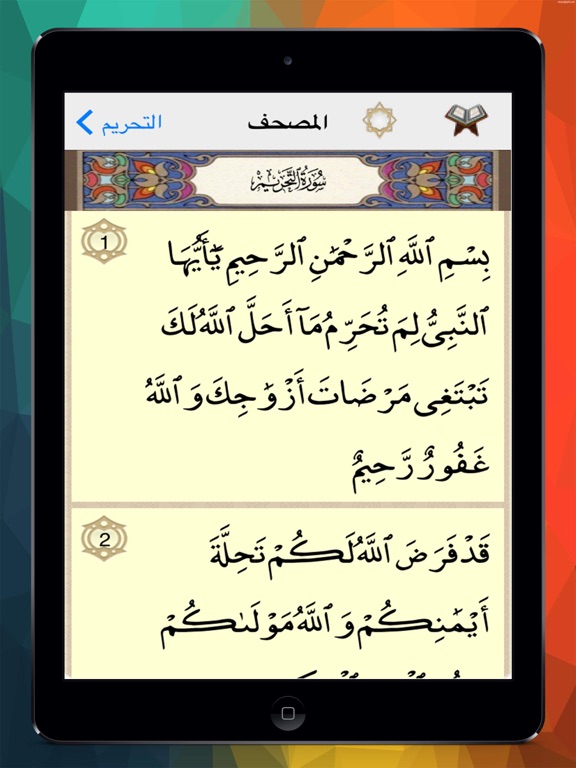 المصحف
التحريم
سُورَةُ التَّحْرِيمِ
1
بِسْمِ ٱللَّهِ ٱلرَّحْمَٰنِ ٱلرَّحِيمِ يَٰٓأَيُّهَا
ٱلنَّبِىُّ لِمَ تُحَرِّمُ مَآ أَحَلَّ ٱللَّهُ لَكَ
تَبْتَغِى مَرْضَاتَ أَزْوَٰجِكَ وَٱللَّهُ
غَفُورٌ رَّحِيمٌ
2
قَدْ فَرَضَ ٱللَّهُ لَكُمْ تَحِلَّةَ
أَيْمَٰنِكُمْ وَٱللَّهُ مَوْلَىٰكُمْ